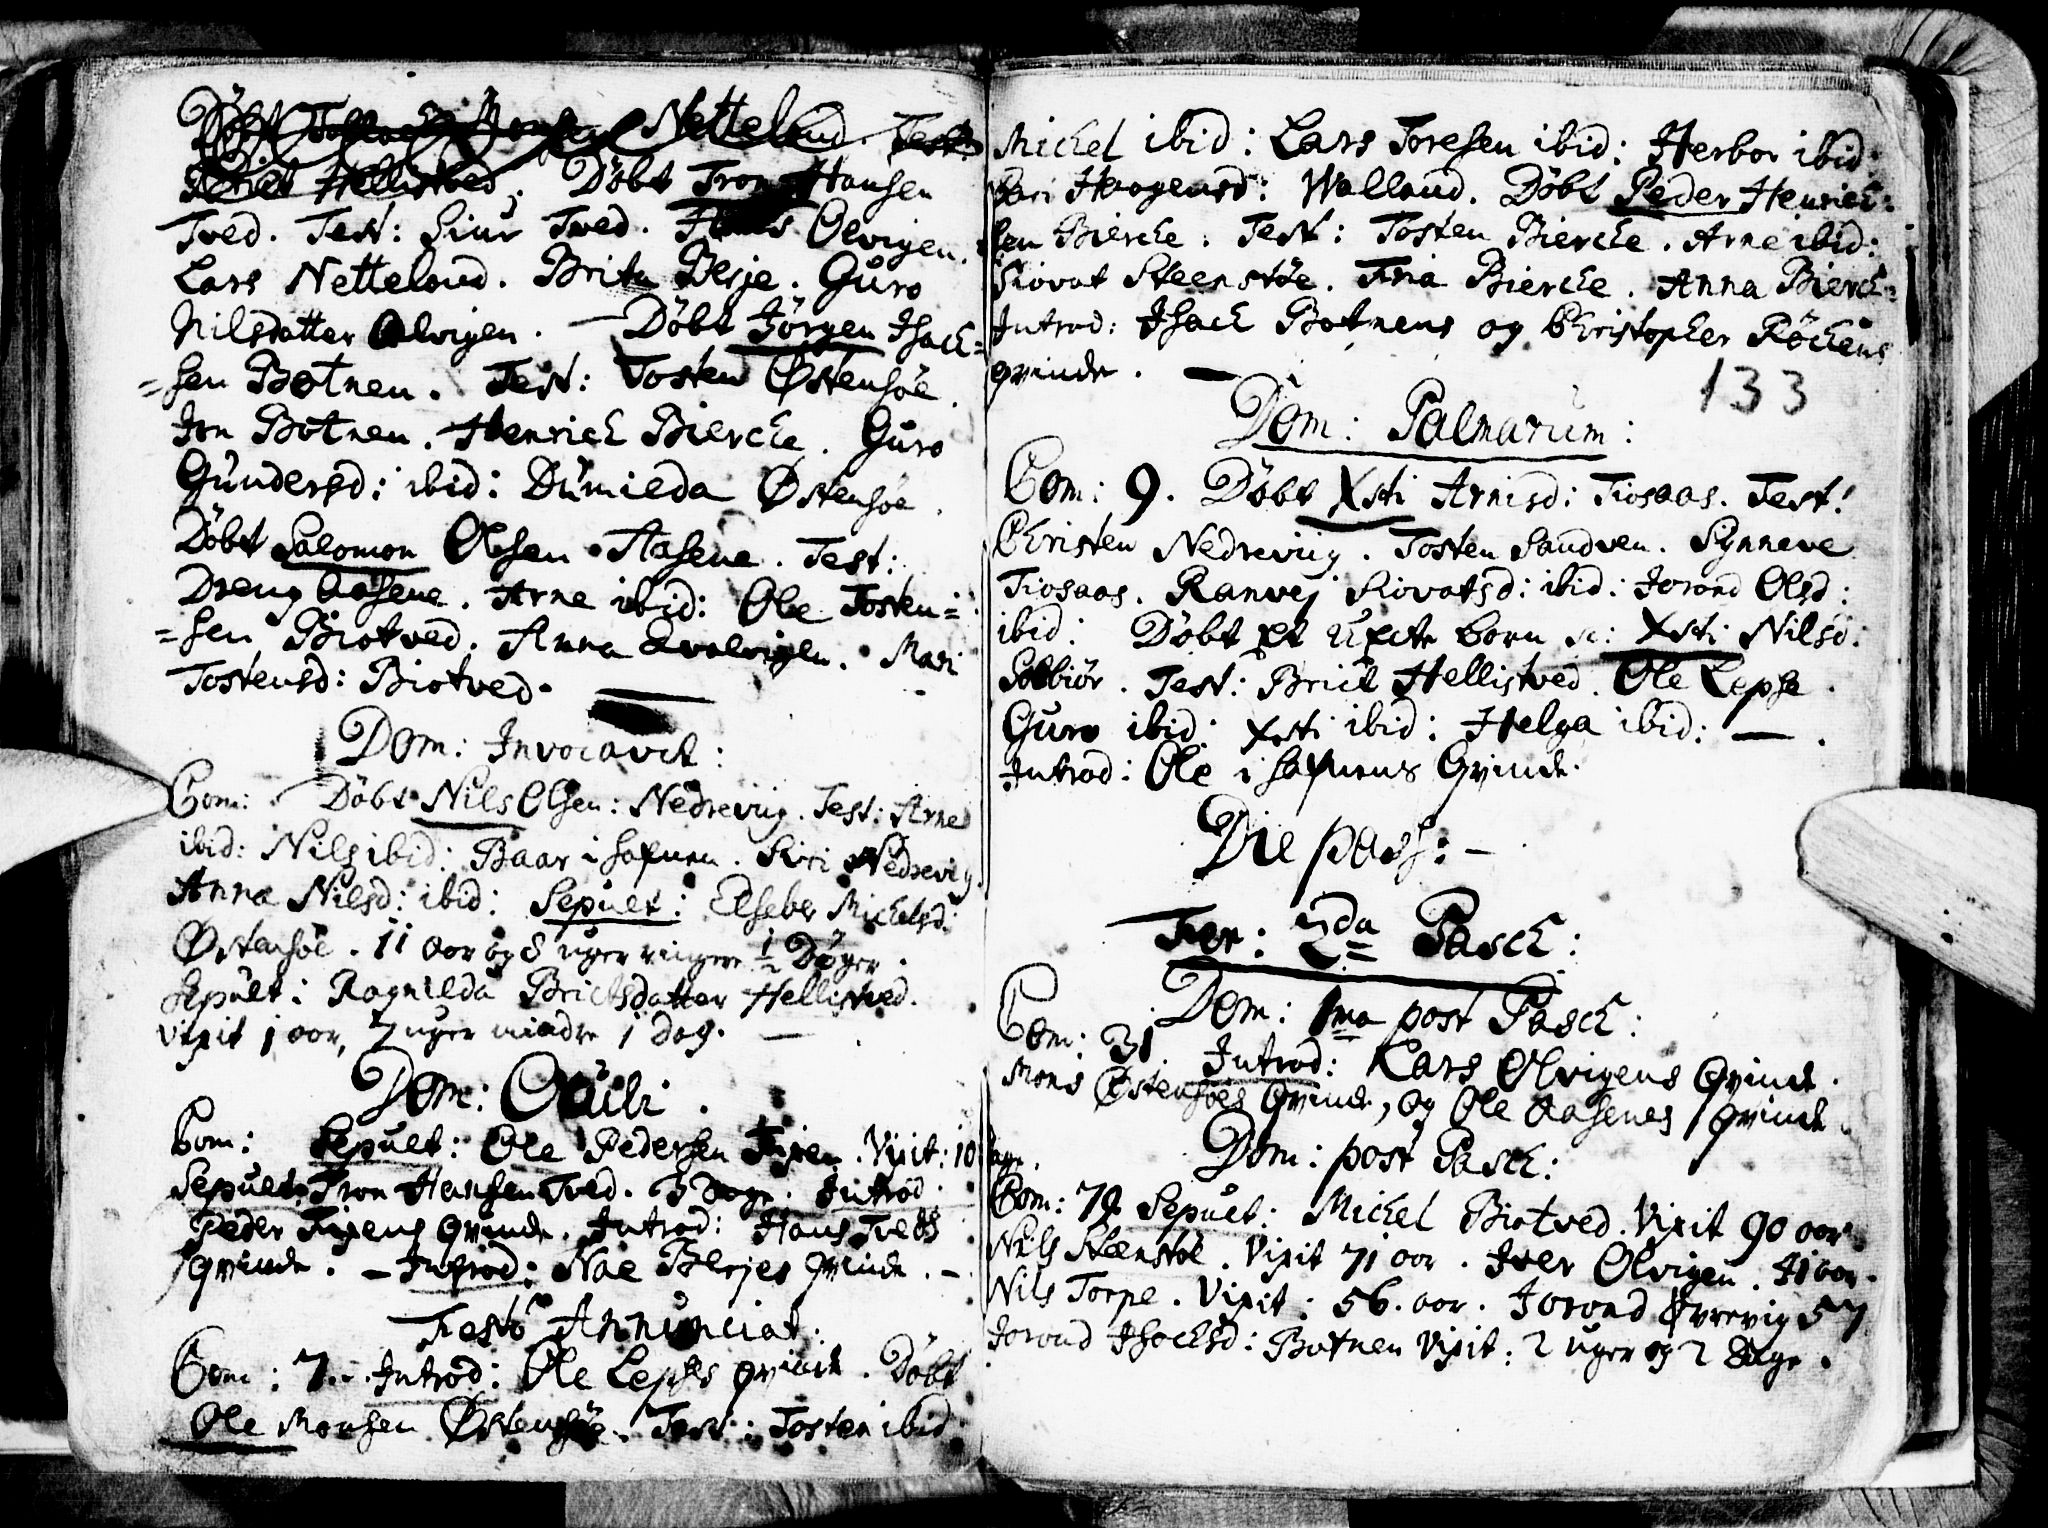 Netteland. Test:
Hellistved. Døbt Tron Hansen
Tved. Test: Siur Tved. Olvigen.
Lars Netteland. Brita Berje. Guro
Nilsdatter Olvigen. — Døbt Jörgen Isach=
=sen Botnen. Test: Tosten Østensøe.
Jon Botnen. Henrich Biercke. Guro
Gundersd: ibid: Dumilda Østensøe.
Døbt Salomon Olsen Aasene. Test:
Dreng Aasene. Arne ibid: Ole Tosten=
=sen Biotved. Anna Mari
Tostensd: Biotved.
Dom: Invocavit:
Com: Døbt Nils Olsen: Nedreviig. Test: Arne
ibid: Nils ibid: Baar i hafnen. Siri Nedrevig.
Anna Nilsd: ibid: Sepult: Elsebe Michelsd:
Østensøe. 11 aar og 8 uger ringere ½ Døger.
Sepult: Ragnilda Brictsdatter Hellistved.
vixit 1 aar, 7 uger mindre 1 dag. —
Dom: Oculi.
Com: Sepult: Ole Pedersen Fixen. Vixit: 10 dage.
Sepult: Tron Hansen Tved. 3 Dage. Introd:
Peder Fixens qvinde. Introd: Hans Tveds
qvinde. — Introd: Berjes qvinde. —
Festo Annunciat:
Com: 7. Introd: Ole Lepses qvinde. Døbt
Ole Monsen Østensøe. Test: Tosten ibid
Michel ibid: Lars Toresen ibid: Herbor ibid:
Mari Haagensd: Walland. Døbt Peder Henrich=
sen Biercke. Test: Tosten Biercke. Arne ibid:
Siovat Steenstøe. Biercke. Anna Bierck=
Introd: Isach Botnens og Christopher Röckens
qvinde. —
133
Dom: Palmarum:
Com: 9. Døbt Xsti Arnisd: Tiosaas. Test:
Christen Nedreviig. Tosten Sandven. Synneve
Tiosaas. Ranvej Siovatsd: ibid: Jorond Olsd:
ibid: Døbt et uecte born n: Xsti Nilsd:
Solbiör. Test: Brict Hellistved. Ole Lepse.
Guro ibid: Xsti ibid: Helga ibid: —
Introd: Ole i hafnens Qvinde.
Die pasch: —
Fer: 2da Pasch:
Dom: 1ma post Pasch:
Com: 31. Introd: Lars Olvigens Qvinde.
Mons Østensøes Qvinde, og Ole Aasenes qvinde.
Dom: post Pasch:
Com: 79 Sepult: Michel Biotved. Vixit 90 aar.
Nils Steenstøe. Vixit 71 aar. Iver Olvigen. 71 aar.
Nils Torpe. Vixit: 56. aar. Jorond Øvrevig 57
Jorond Isachsd: Botnen Vixit: 2 uger og 2 Dage.